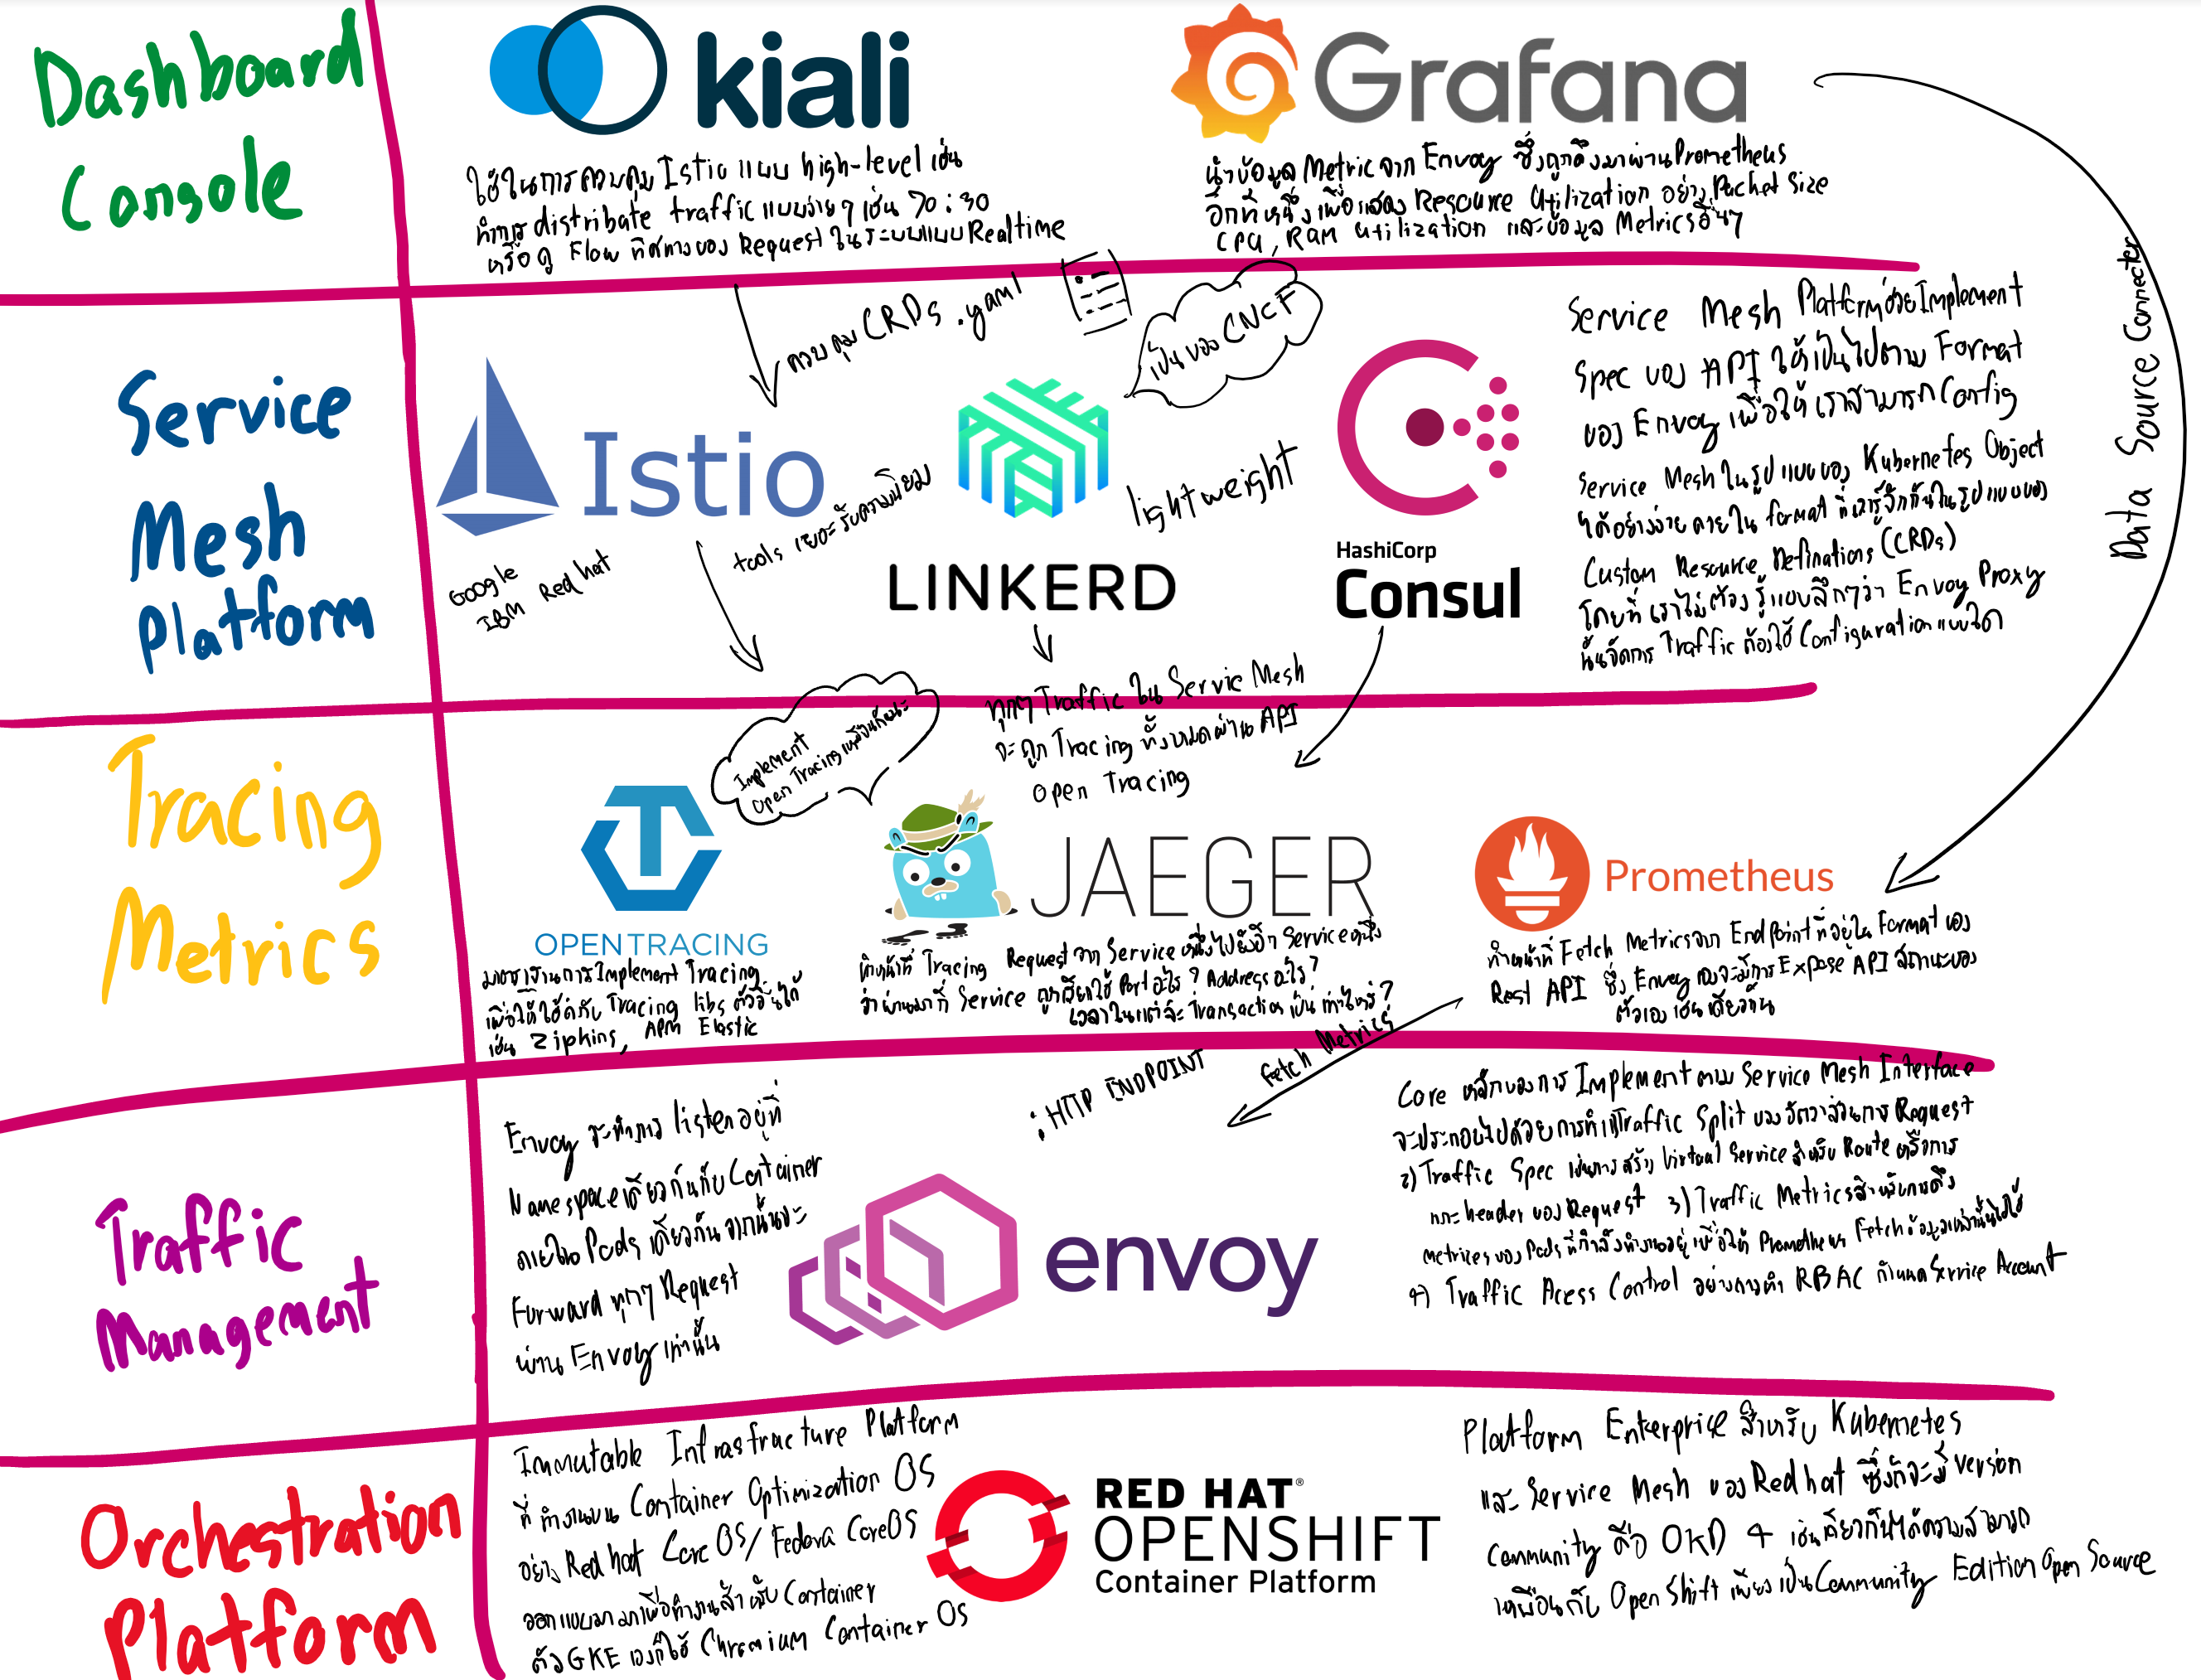 Dashboard
Console
kiali
ใช้ในการควบคุม Istio แบบ high-level เช่น
ทำการ distribate traffic แบบง่ายๆ เช่น 70:30
หรือดู Flow ทิศทางของ Request ในระบบแบบ Realtime
Grafana
นำข้อมูล Metric จาก Envoy ซึ่งถูกดึงมาผ่าน Prometheus
อีกทีหนึ่งเพื่อแสดง Resource Utilization อย่าง Packet Size
CPU, RAM utilization และข้อมูล Metrics อื่นๆ
Data Source Connecter
Service
Mesh
Platform
ควบคุม CRDs .yaml
เป็นของ CNCF
Istio
Google
IBM Red hat
tools เยอะ รับความนิยม
LINKERD
lightweight
HashiCorp
Consul
Service Mesh Platform ช่วย Implement
Spec ของ API ให้เป็นไปตาม Format
ของ Envoy เพื่อให้เราสามารถ Config
Service Mesh ในรูปแบบของ Kubernetes Object
ได้อย่างง่ายดายใน format ที่เรารู้จักกันในรูปแบบของ
Custom Resource Definations (CRDs)
โดยที่เราไม่ต้องรู้แบบลึกๆว่า Envoy Proxy
นั้นจัดการ Traffic ต้องใช้ Configuration แบบใด
Tracing
Metrics
Implement
Open Tracing เหมือนกันนะ
ทุกๆ Traffic ใน Servic Mesh
จะถูก Tracing ทั้งหมดผ่าน API
Open Tracing
OPENTRACING
มาตรฐานการ Implement Tracing
เพื่อให้ใช้กับ Tracing libs ตัวอื่นได้
เช่น Zipkins, APM Elastic
JAEGER
ทำหน้าที่ Tracing Request จาก Service หนึ่งไปยังอีก Service หนึ่ง
ว่าผ่านมาที่ Service ถูกเรียกใช้ Port อะไร? Address อะไร?
เวลาในแต่ละ Transaction เป็นเท่าไหร่?
Prometheus
ทำหน้าที่ Fetch Metrics จาก Endpoint ที่อยู่ใน Format ของ
Rest API ซึ่ง Envoy เองจะมีการ Expose API สถานะของ
ตัวเองเช่นเดียวกัน
Traffic
Management
: HTTP ENDPOINT
Fetch Metrics
Envoy จะทำการ listen อยู่ที่
Namespace เดียวกันกับ Container
ภายใน Pods เดียวกัน จากนั้นจะ
Forward ทุกๆ Request
ผ่าน Envoy เท่านั้น
envoy
Core หลักของการ Implement ตาม Service Mesh Interface
จะประกอบไปด้วยการทำ 1) Traffic Split ของอัตราส่วนการ Request
2) Traffic Spec เช่นการสร้าง Virtual Service สำหรับ Route หรือการ
header ของ Request 3) Traffic Metrics สำหรับการดึง
metrices ของ Pods ที่กำลังทำงานอยู่ เพื่อให้ Prometheus Fetch ข้อมูลเหล่านั้นไปใช้
4) Traffic Acess Control อย่างการทำ RBAC กำหนด Service Account
Orchestration
Platform
Immutable Infrastracture Platform
ที่ทำงานบน Container Optimization OS
อย่าง Red hat Core OS/ Fedora CoreOS
ออกแบบมาเพื่อทำงานสำหรับ Container
ตัว GKE เองก็ใช้ Chromium Container OS
RED HAT®
OPENSHIFT
Container Platform
Platform Enterprise สำหรับ Kubernetes
และ Service Mesh ของ Red hat ซึ่งก็จะมี version
Community คือ OKD 4 เช่นเดียวกันได้ความสามารถ
เหมือนกับ Open Shift เพียงเป็น Community Edition Open Source